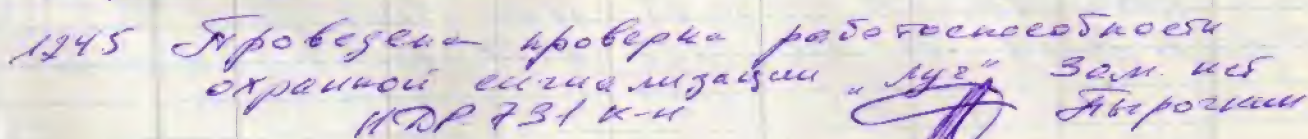 1245 Проведена проверка работоспособности
охранной сигнализации "Луч" Зам. нет
НДР 731 к-н Пырочкин